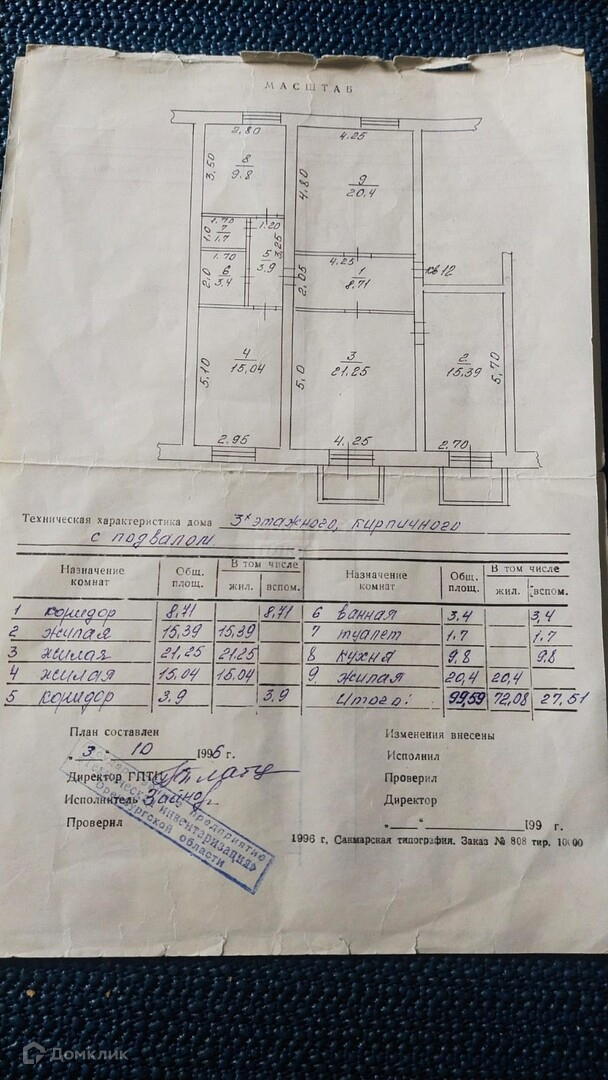 МАСШТАБ
2,80
4.25
3,50
8
9.8
4,80
9
20.4
1.70
1,0
7
1.7
1.20
3,25
5
3.9
1.70
2.0
6
3.4
4.25
2,05
1
8.71
кв 12
5,10
4
15.04
5,0
3
21.25
2
15.39
5,70
2.95
4.25
2.70
Техническая характеристика дома 3х этажного, кирпичного
с подвалом
Назначение комнат Общ. площ. В том числе жил. вспом. Назначение комнат Общ. площ. В том числе жил. вспом.
1 коридор 8,71 8,71 6 ванная 3.4 3,4
2 жилая 15,39 15,39 7 туалет 1.7 1.7
3 жилая 21,25 21.25 8 кухня 9.8 9.8
4 жилая 15,04 15,04 9 жилая 20,4 20,4
5 коридор 3.9 3.9 Итого: 99,59 72,08 27,51
План составлен
„ 3 " 10 1996 г.
Директор ГПТИ
Исполнитель
Проверил
предприятие
технической инвентаризации»
Оренбургской области
Изменения внесены
Исполнил
Проверил
Директор
„ " 199 г.
1996 г, Сакмарская типография. Заказ № 808 тир. 10000
Домклик